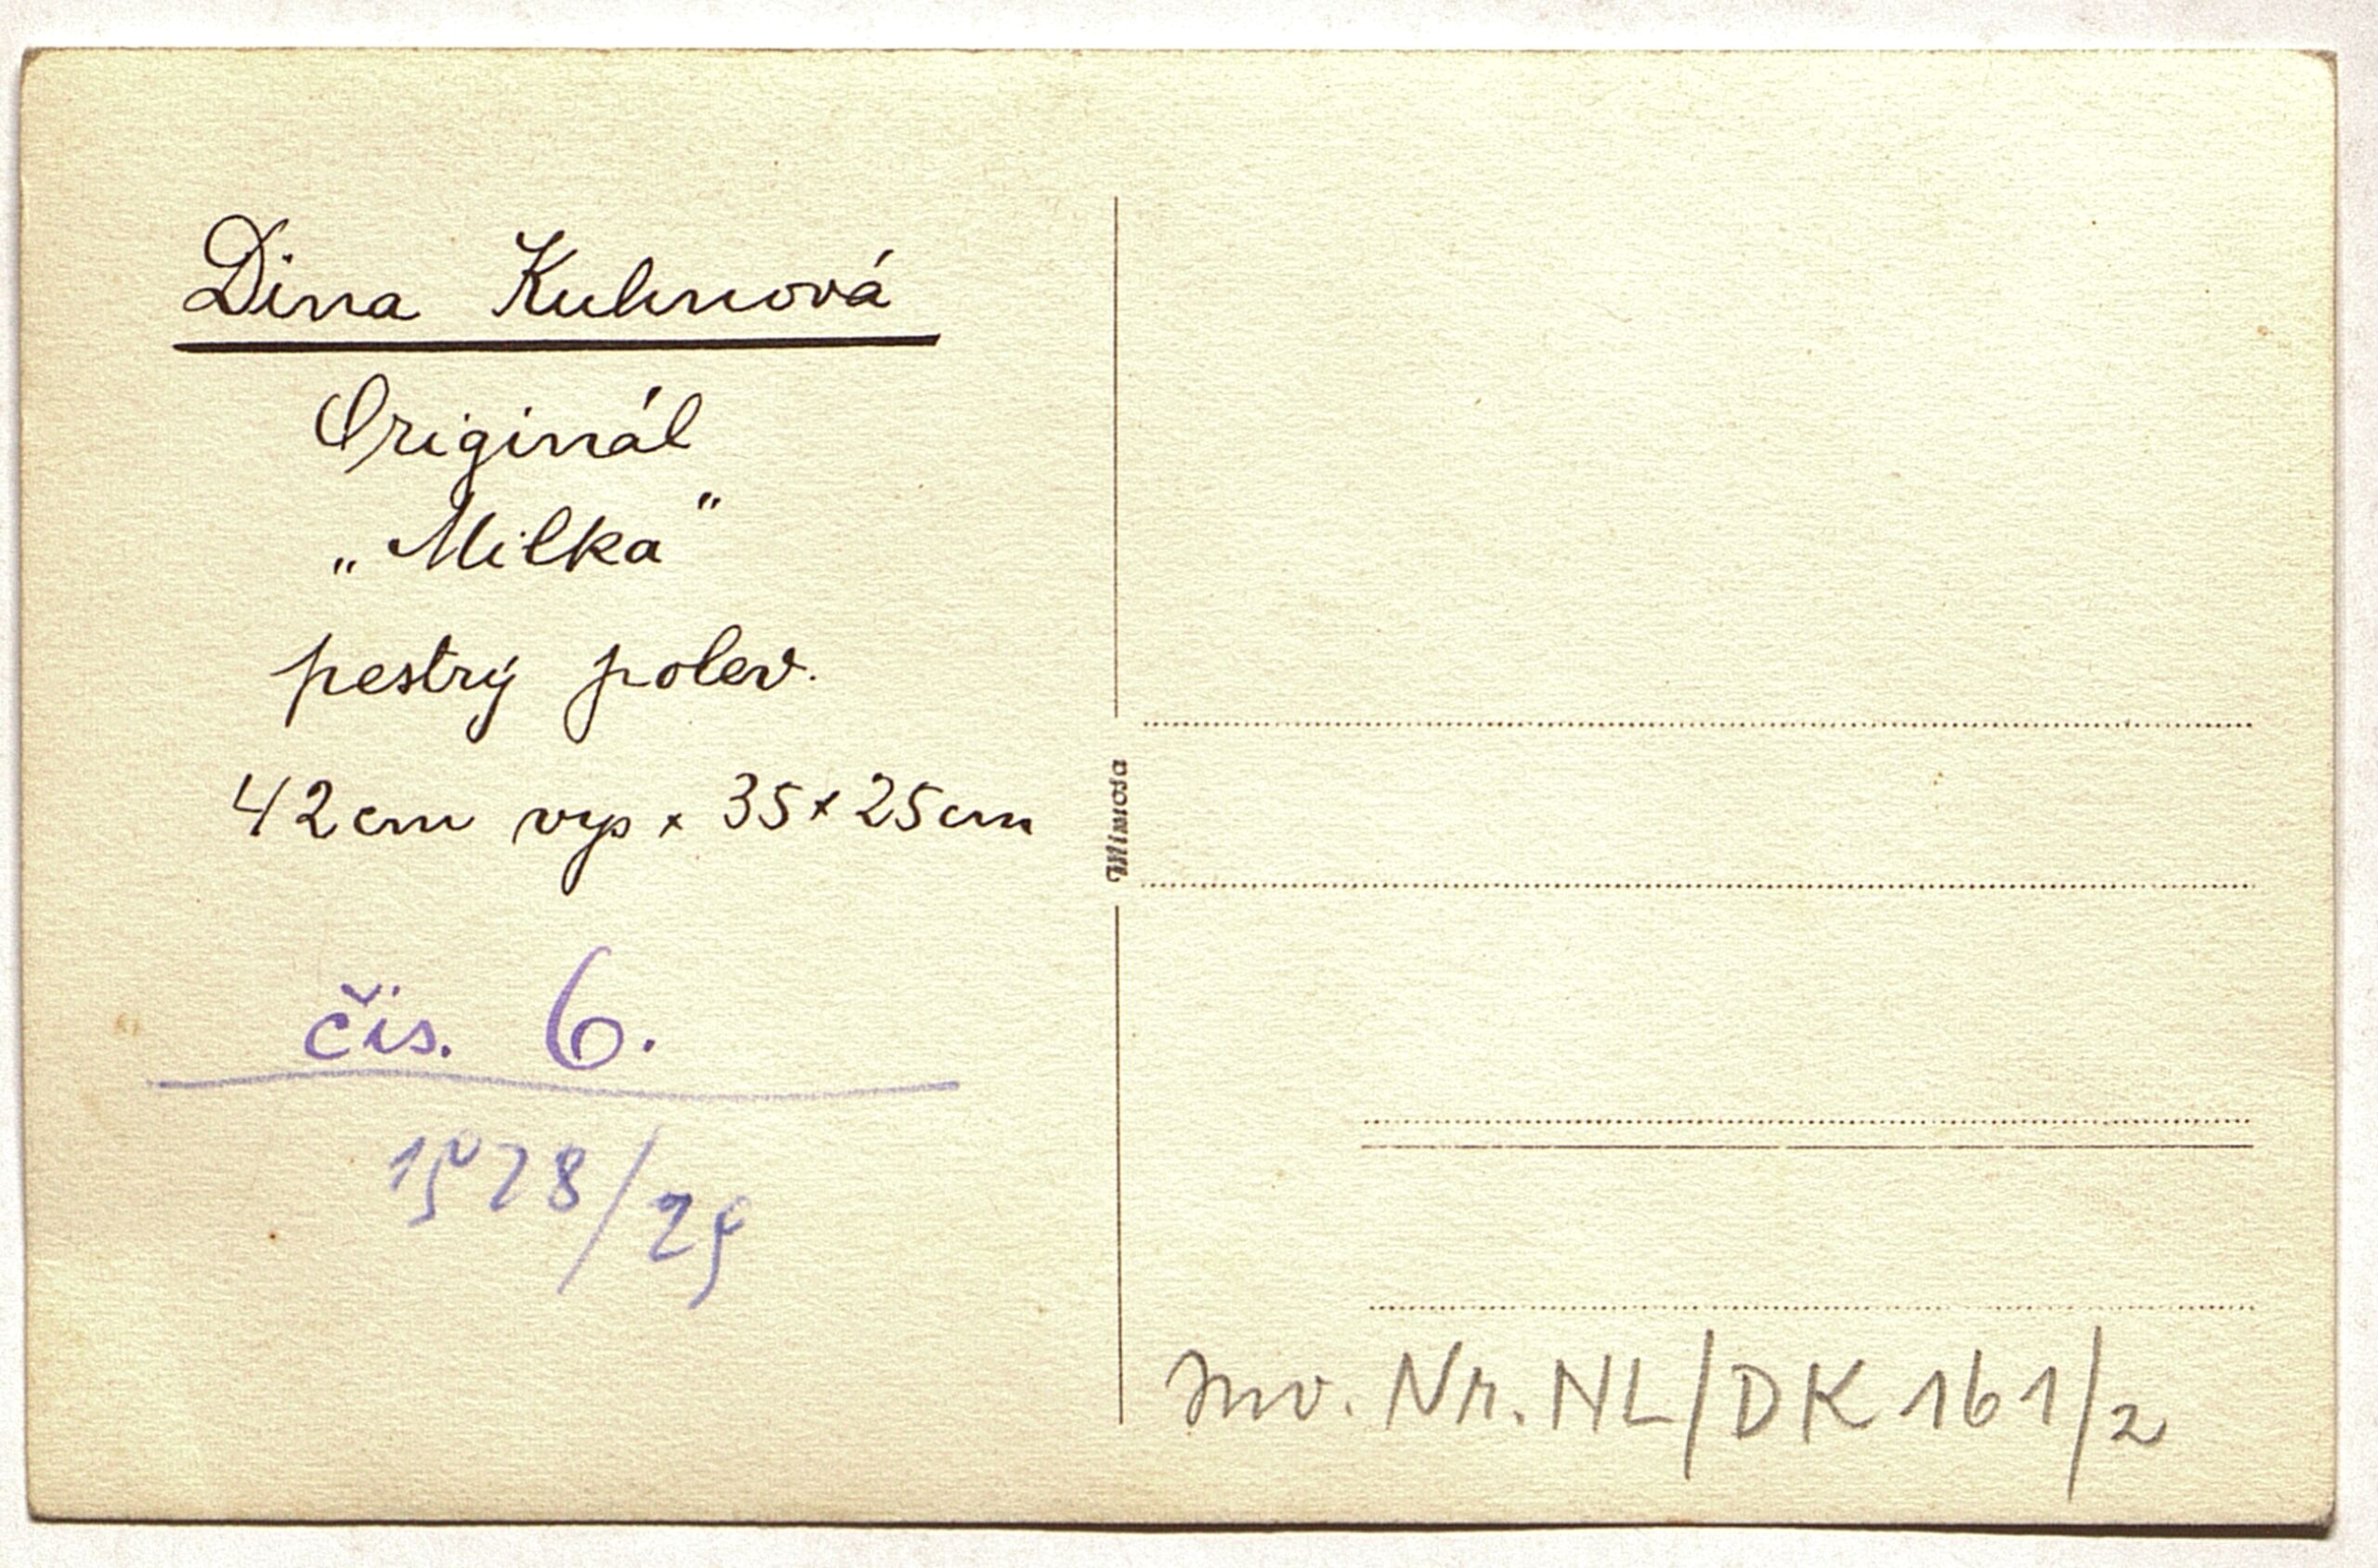 Dina Kuhnová
Originál
„Milka"
pestrý polev.
42cm vys x 35x25cm
čís. 6.
1928/29
Mimosa
Inv. Nr. NL/DK 161/2